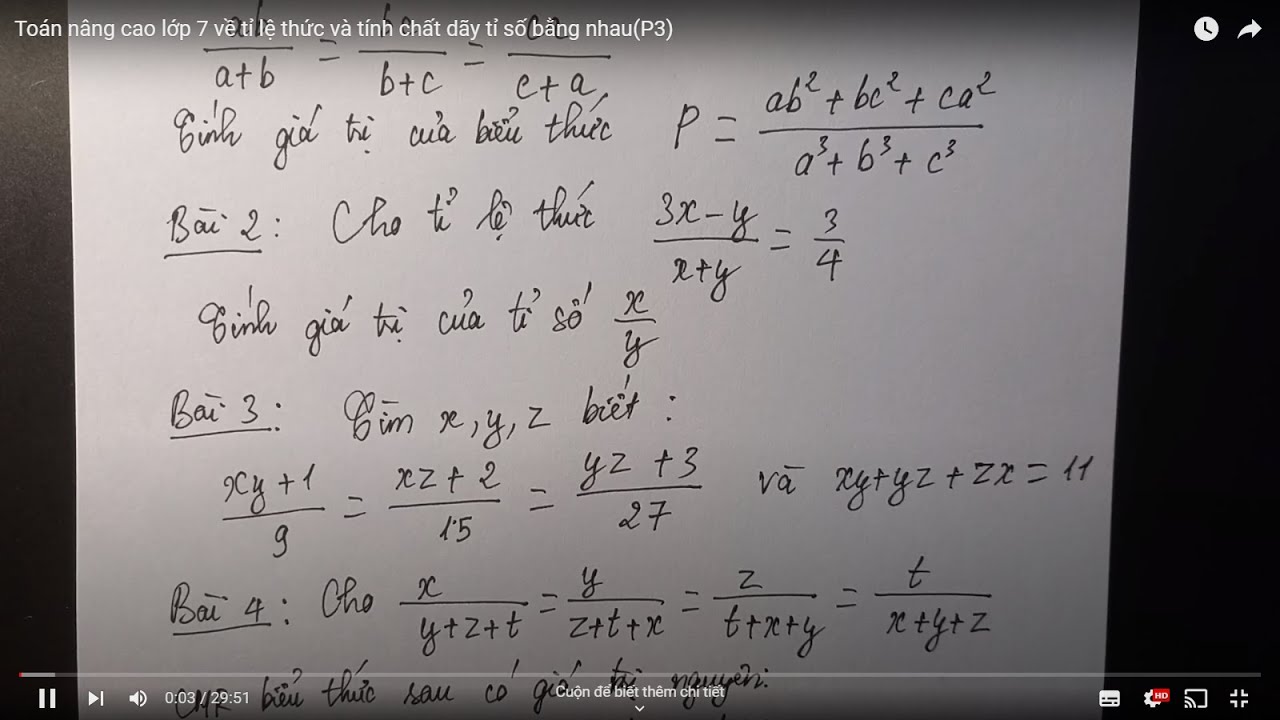 Toán nâng cao lớp 7 về tỉ lệ thức và tính chất dãy tỉ số bằng nhau(P3)
ab/(a+b) = bc/(b+c) = ca/(c+a)
Tính giá trị của biểu thức P = (ab² + bc² + ca²)/(a³ + b³ + c³)
Bài 2: Cho tỉ lệ thức (3x-y)/(x+y) = 3/4
Tính giá trị của tỉ số x/y
Bài 3: Tìm x, y, z biết:
(xy+1)/9 = (xz+2)/15 = (yz+3)/27 và xy+yz+zx = 11
Bài 4: Cho x/(y+z+t) = y/(z+t+x) = z/(t+x+y) = t/(x+y+z)
CMR biểu thức sau có giá trị nguyên:
Cuộn để biết thêm chi tiết
0:03 / 29:51
HD